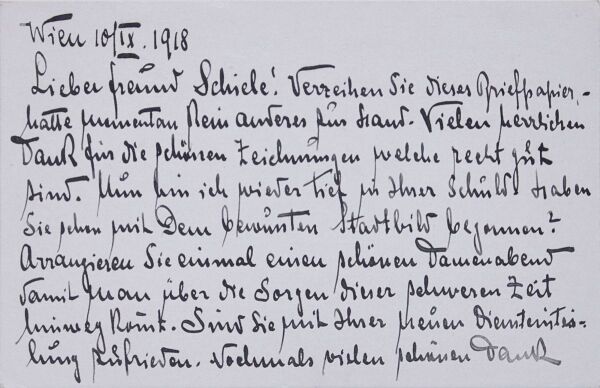 Wien 10/IX. 1918
Lieber freund Schiele! Verzeihen Sie dieses Briefpapier, -
hatte momentan kein anderes zur Hand. Vielen herrlichen
Dank für die schönen Zeichnungen welche recht gut
sind. Nun bin ich wieder tief in Ihrer Schuld. Haben
Sie schon mit Dem bewußten Stadtbild begonnen?
Arrangieren Sie einmal einen schönen Damenabend
damit man über die Sorgen dieser schweren Zeit
hinweg kommt. Sind Sie mit Ihrer neuen Diensteintei-
lung zufrieden. Nochmals vielen schönen Dank